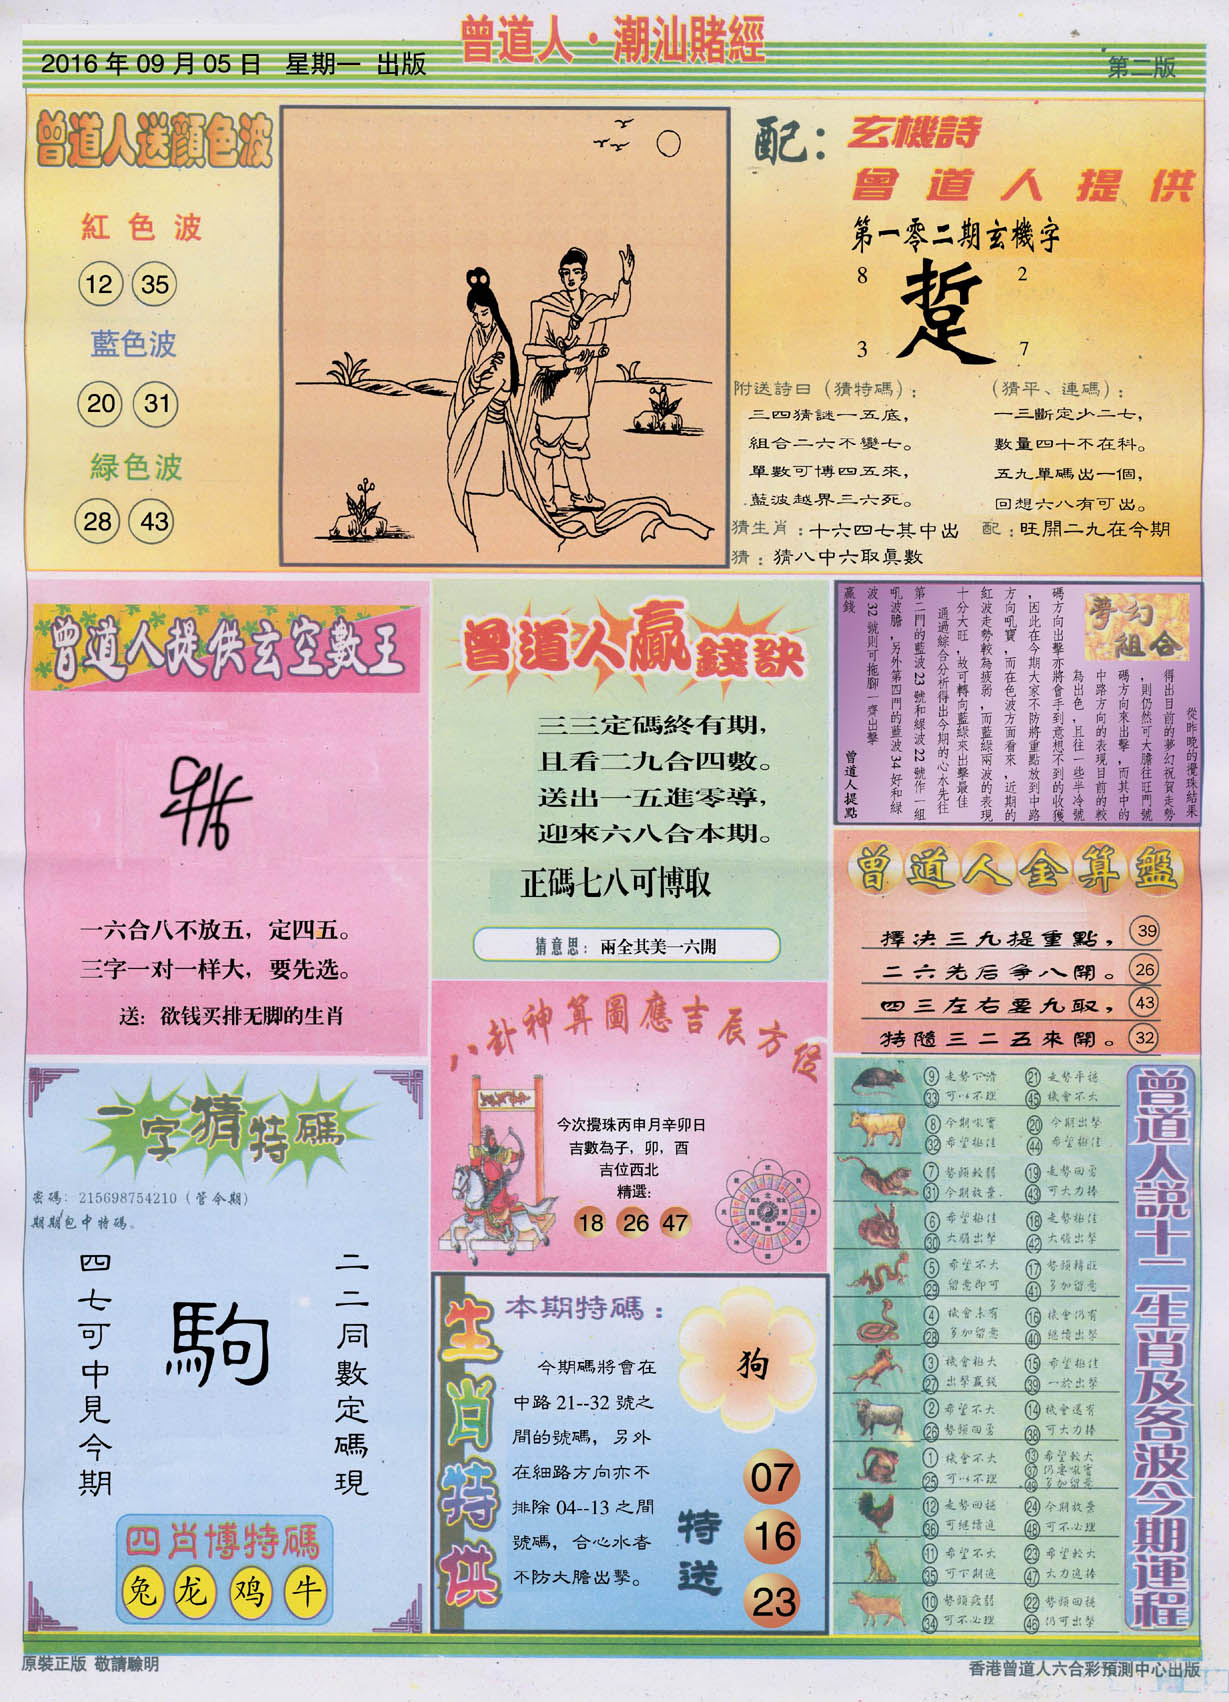 曾道人·潮汕賭經
2016年09月05日 星期一 出版
第二版
曾道人送顏色波
紅色波
12 35
藍色波
20 31
緑色波
28 43
配：玄機詩
曾道人提供
第一零二期玄機字
8 2
踅
3 7
附送詩曰（猜特碼）：
三四猜謎一五底，
組合二六不變七。
單數可博四五來，
藍波越界三六死。
猜生肖：十六四七其中出
猜：猜八中六取眞數
（猜平、連碼）：
一三斷定少二七，
數量四十不在科。
五九單碼出一個，
回想六八有可出。
配：旺開二九在今期
曾道人提供玄空數王
一六合八不放五，定四五。
三字一对一样大，要先选。
送：欲钱买排无脚的生肖
曾道人贏錢訣
三三定碼終有期，
且看二九合四數。
送出一五進零導，
迎來六八合本期。
正碼七八可博取
猜意思：兩全其美一六開
夢幻組合
從昨晚的攪珠結果
得出目前的夢幻祝賀走勢
，則仍然可大膽往旺門號
碼方向來出擊，而其中的
中路方向的表現目前的較
為出色，且往一些半冷號
碼方向出擊亦將會手到意想不到的收獲
，因此在今期大家不防將重點放到中路
方向吼寶，而在色波方面看來，近期的
紅波走勢較為疲弱，而藍綠兩波的表現
十分大旺，故可轉向藍綠來出擊最佳
通過綜合分析得出今期的心水先往
第二門的藍波23號和綠波22號作一組
吼波膽，另外第四門的藍波34好和綠
波32號則可拖腳一齊出擊
贏錢
曾道人提點
曾道人金算盤
擇決三九提重點， 39
二六先后爭八開。 26
四三左右要九取， 43
特隨三二五來開。 32
八卦神算圖應吉辰方位
今次攪珠丙申月辛卯日
吉數為子，卯，酉
吉位西北
精選：
18 26 47
一字猜特碼
密碼：215698754210（管今期）
期期包中特碼。
二二同數定碼現
駒
四七可中見今期
四肖博特碼
兔 龙 鸡 牛
生肖特供
本期特碼：
狗
今期碼將會在
中路21--32號之
間的號碼，另外
在細路方向亦不
排除04--13之間
號碼，合心水者
不防大膽出擊。
特送
07
16
23
曾道人說十二生肖及各波今期運程
9 走勢下滑 21 走勢平穩
33 可以不理 45 機會不大
8 今期吼實 20 今期出擊
32 希望極佳 44 希望極佳
7 勢頭較弱 19 走勢回勇
31 今期放棄 43 可大力捧
6 希望極佳 18 走勢極佳
30 大膽出擊 42 大膽出擊
5 希望不大 17 勢頭轉旺
29 留意即可 41 多加留意
4 機會未有 16 機會仍有
28 多加留意 40 繼續出擊
3 機會極大 15 希望極佳
27 出擊贏錢 39 一於出擊
2 希望不大 14 機會還有
26 勢頭回勇 38 可大力捧
1 機會不大 13 希望較大
25 可以不理 37 仍要吼實
49 多加留意
12 走勢回穩 24 今期放棄
36 可繼續追 48 可不必理
11 希望不大 23 希望較大
35 可下期追 47 大力追捧
10 勢頭疲弱 22 勢頭回穩
34 可不必理 46 仍可出擊
原裝正版 敬請驗明
香港曾道人六合彩預測中心出版